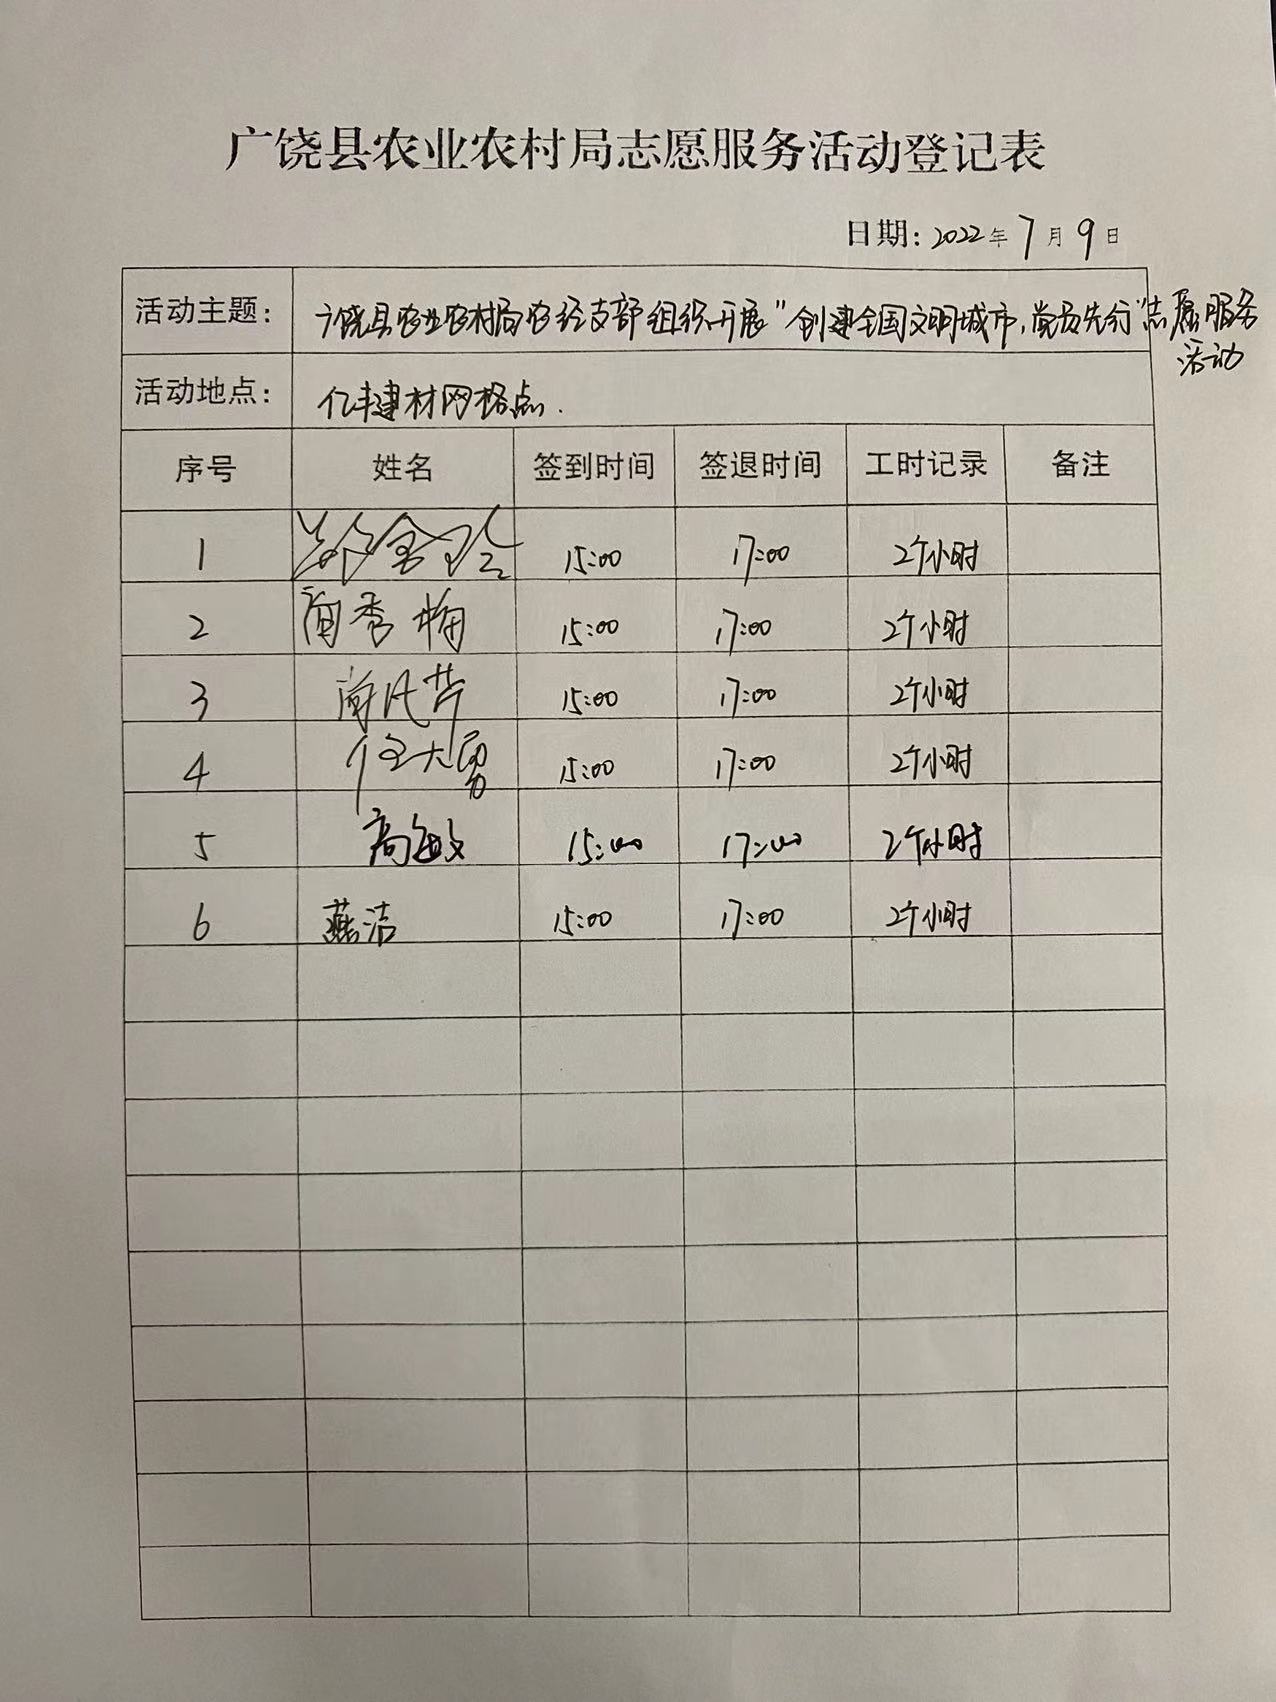 广饶县农业农村局志愿服务活动登记表
日期: 2022年 7月 9日
活动主题: 广饶县农业农村局农经支部组织开展"创建全国文明城市,党员先行"志愿服务
活动
活动地点: 亿丰建材网格点.
序号 姓名 签到时间 签退时间 工时记录 备注
1 15:00 17:00 2个小时
2 秀梅 15:00 17:00 2个小时
3 15:00 17:00 2个小时
4 任大勇 15:00 17:00 2个小时
5 高敏 15:00 17:00 2个小时
6 燕洁 15:00 17:00 2个小时